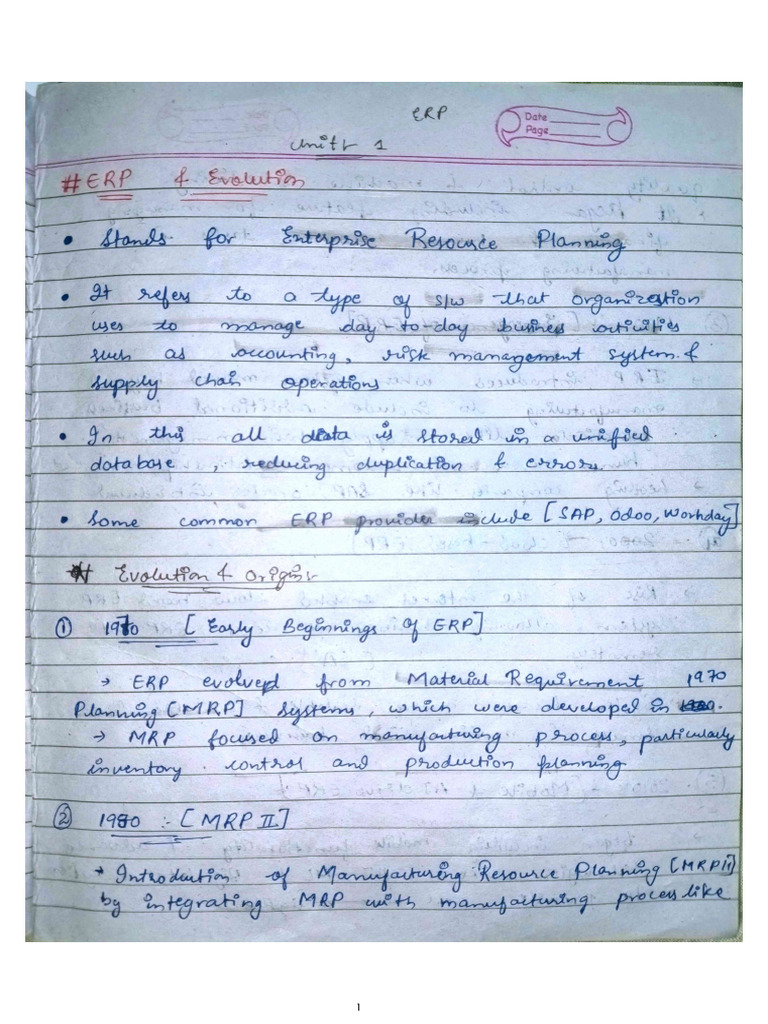 ERP
Date
Page
Unit 1
# ERP & Evolution
• Stands for Enterprise Resource Planning
• It refers to a type of s/w that organization
uses to manage day-to-day business activities
such as accounting, risk management system &
supply chain operations
• In this all data is stored in a unified
database, reducing duplication & errors.
• Some common ERP provider include [SAP, Odoo, Workday]
# Evolution & Origin
① 1970 [Early Beginnings of ERP]
→ ERP evolved from Material Requirement 1970
Planning [MRP] systems, which were developed in
→ MRP focused on manufacturing process, particularly
inventory control and production planning
② 1980 :- [MRP II]
→ Introduction of Manufacturing Resource Planning [MRP II]
by integrating MRP with manufacturing process like
1